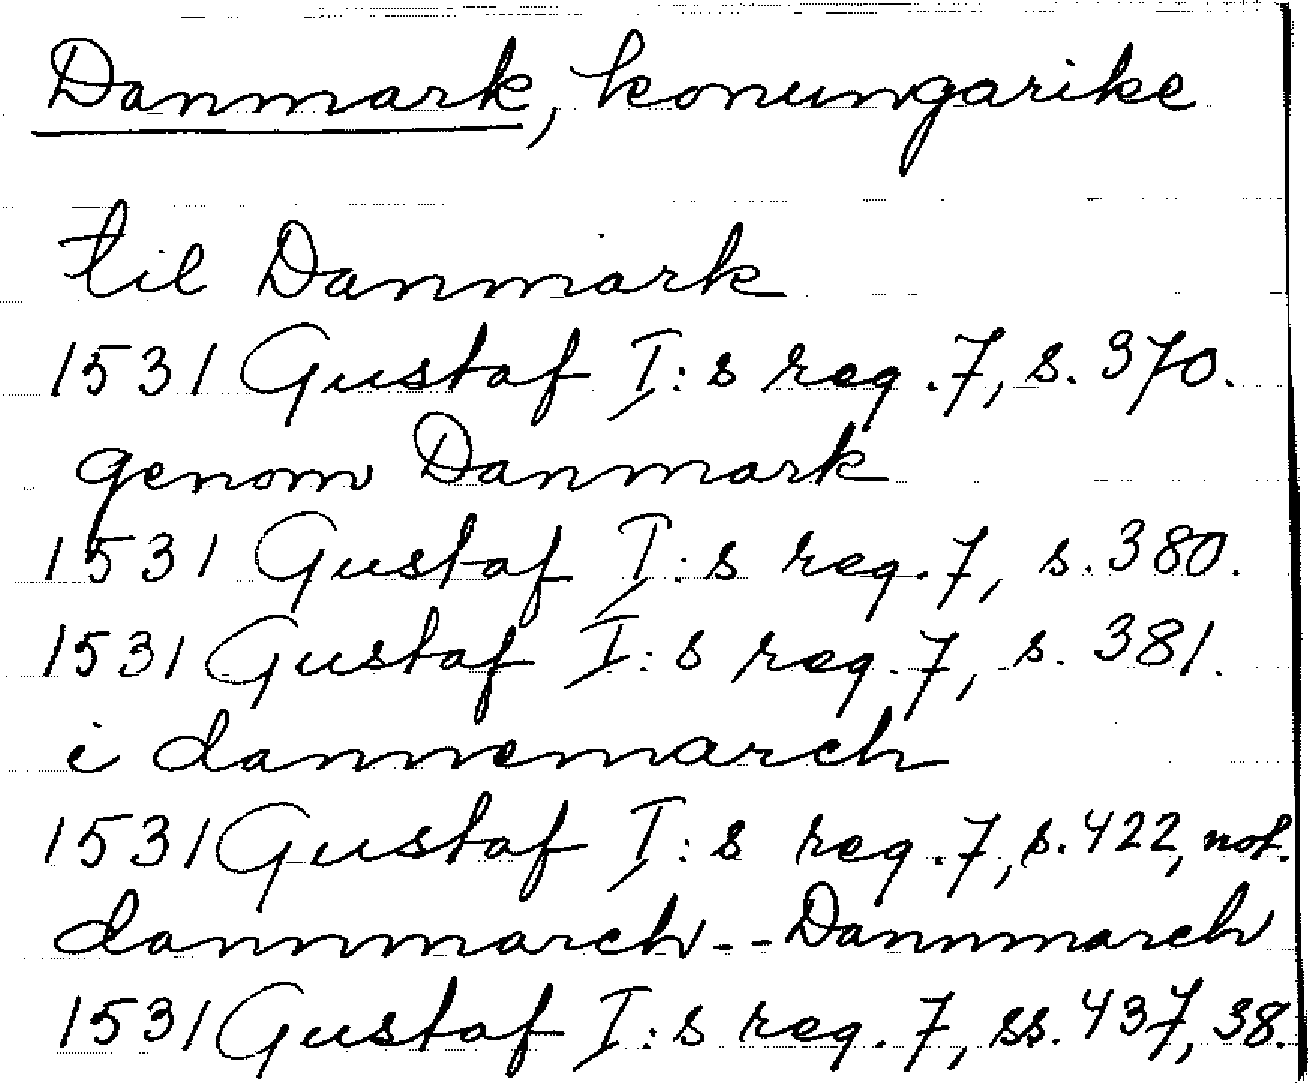 Danmark, konungarike
til Danmark
1531 Gustaf I:s reg. 7, s. 370.
genom Danmark
1531 Gustaf I:s reg. 7, s. 380.
1531 Gustaf I:s reg. 7, s. 381.
i dannemarch
1531 Gustaf I:s reg. 7, s. 422, not.
dannmarch -- Dannmarch
1531 Gustaf I:s reg. 7, ss. 437, 38.